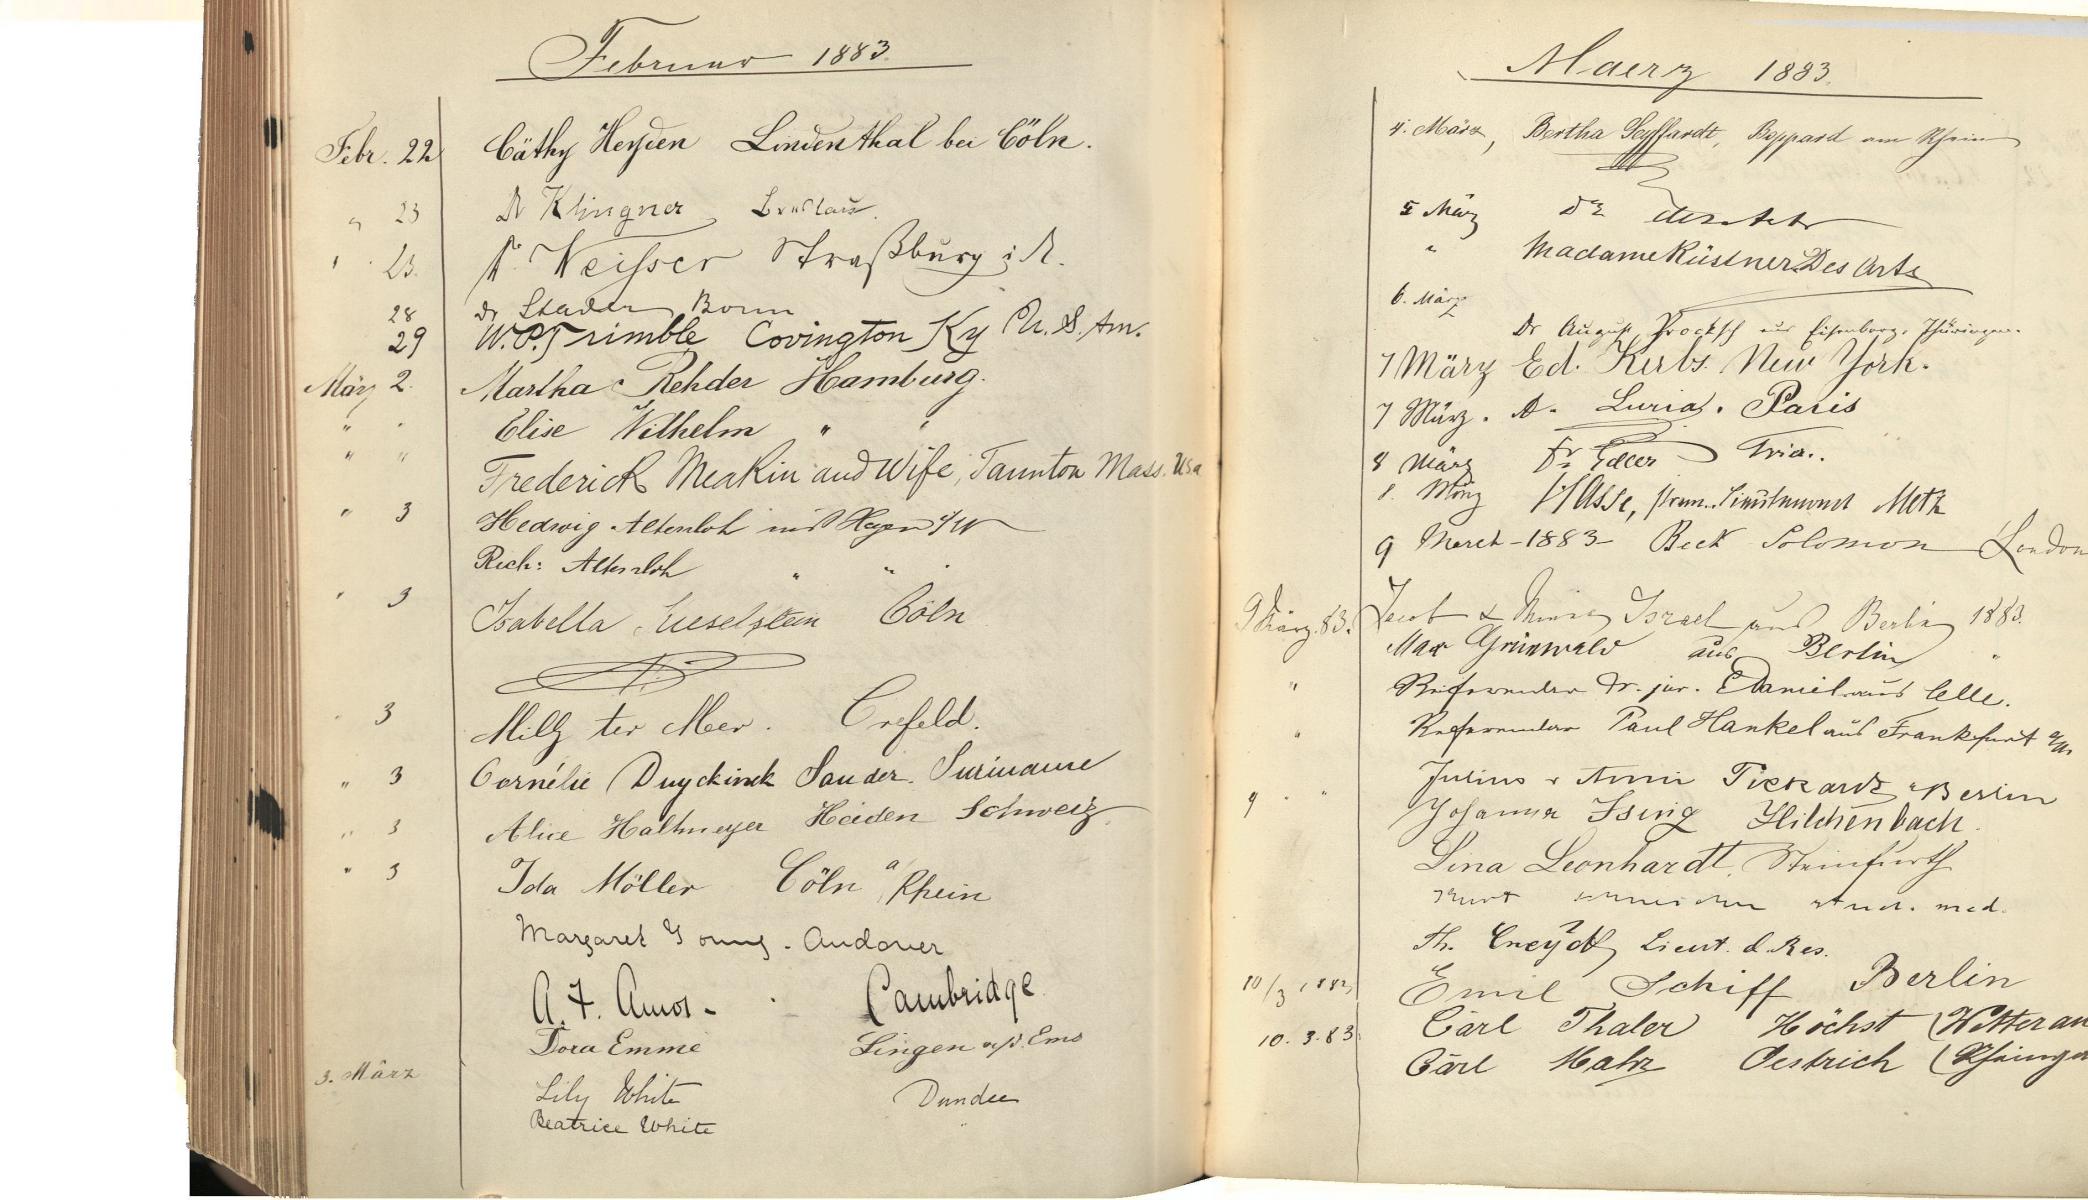 Februar 1883
Febr. 22 Cäthy Heyden Lindenthal bei Cöln.
" 23 Dr Klingner Breslau.
" 23. Dr Weisser Straßburg i. A.
28 Dr Stader Bonn
29 W.P. Trimble Covington Ky U.S. Am.
März 2. Martha Rehder Hamburg.
" " Elise Wilhelm " "
" " Frederick Meakin and Wife, Taunton Mass. Usa
" 3 Hedwig Altenloh aus Hagen i/W
Rich: Altenloh " "
" 3 Isabella Cöln
" 3 Milly ter Meer. Crefeld.
" 3 Cornélie Duyckinck Sander. Suriname
" 3 Alice Haltmeyer Heiden Schweiz
" 3 Ida Möller Cöln a/Rhein
Margaret Young - Andover
A. F. Amos - Cambridge
Dora Emme Lingen a/d. Ems
3. März
Lily White Dundee
Beatrice White
Maerz 1883.
4. März, Bertha Seyffardt, Boppard am Rhein
5 März Dr
" Madame Küstner Des Arts
6. März
Dr August Procksch aus Eisenberg, Thüringen.
7 März Ed. Kerbs. New York.
7 März. A. Luria. Paris
8 März Dr Edler
8. März Hasse, Prem. Lieutenant Metz
9 March - 1883 - Beck Solomon London
9 März. 83. Jacob & Minna Israel aus Berlin 1883.
Max Grünwald aus Berlin "
" Referendar Dr. jur. E Daniel aus Celle.
" Referendar Paul Hankel aus Frankfurt a/M
Julius & Anni Pickardt Berlin
9 " " Johanna Ising Hilchenbach.
Lina Leonhardt, Steinfurth
Kurt stud. med.
Th. Lieut. d. Res.
10/3 1883 Emil Schiff Berlin
10. 3. 83 Carl Thaler Höchst (Wetterau
Carl Mahr Oestrich (Rheinga